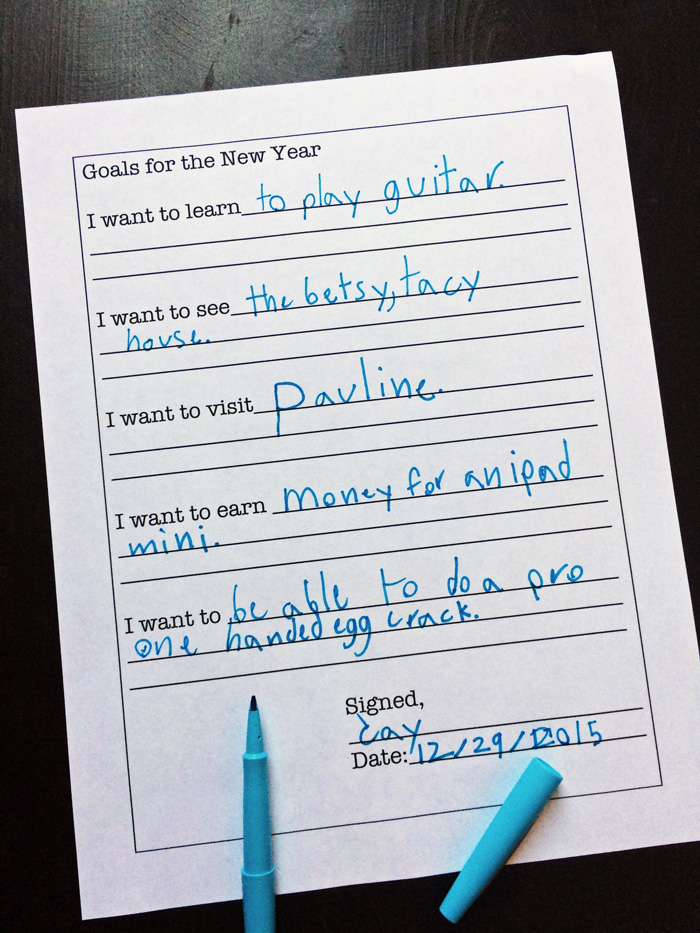 Goals for the New Year
I want to learn to play guitar.
I want to see the betsy, tacy
house.
I want to visit Pauline.
I want to earn money for an ipad
mini.
I want to be able to do a pro
one handed egg crack.
Signed,
Date: 12/29/2015